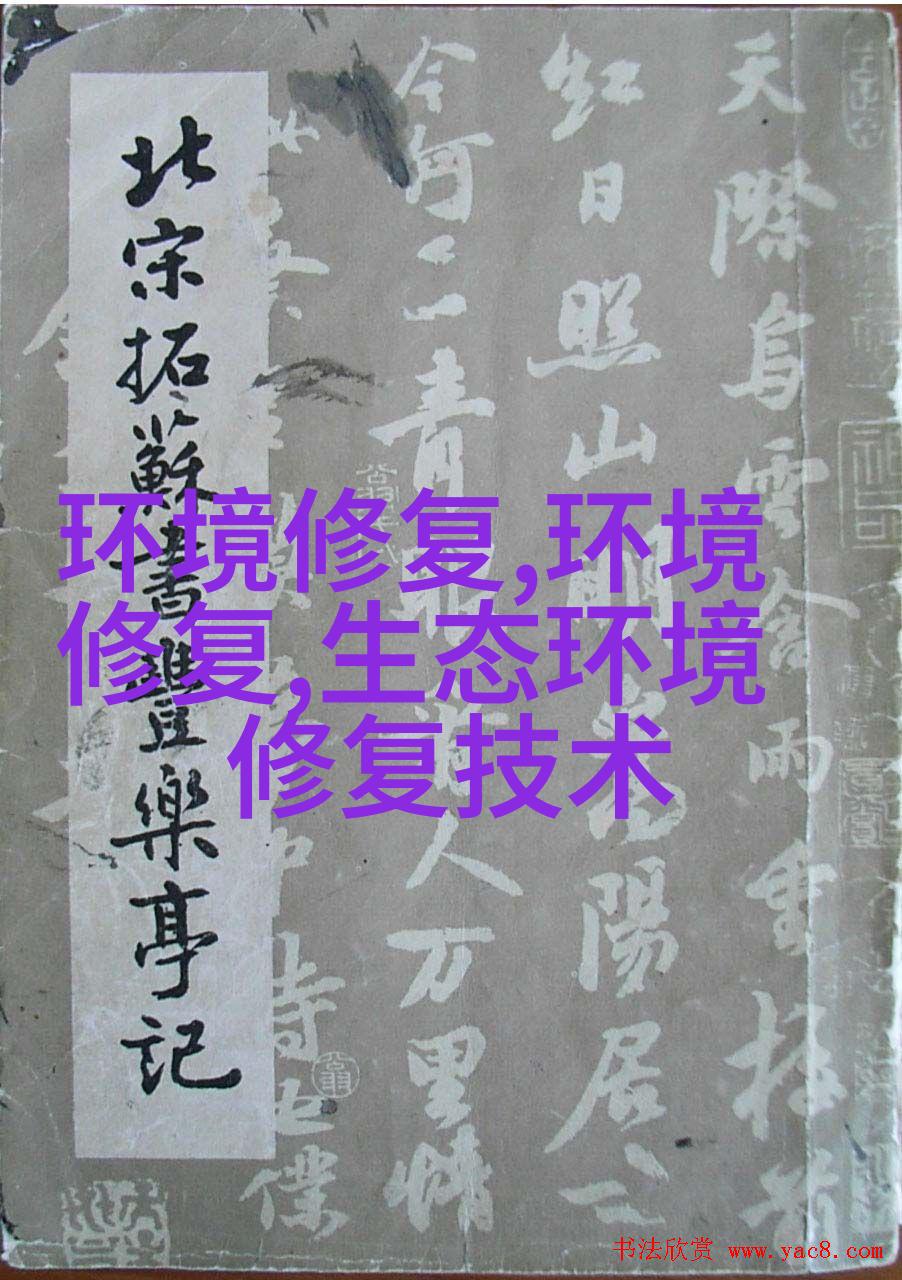 天際烏雲含雨重樓前
紅日照山明嵩陽居士
今何在青眼看人万里情
北宋拓蘇書豐樂亭記
环境修复,环境
修复,生态环境
修复技术
书法欣赏 www.yac8.com